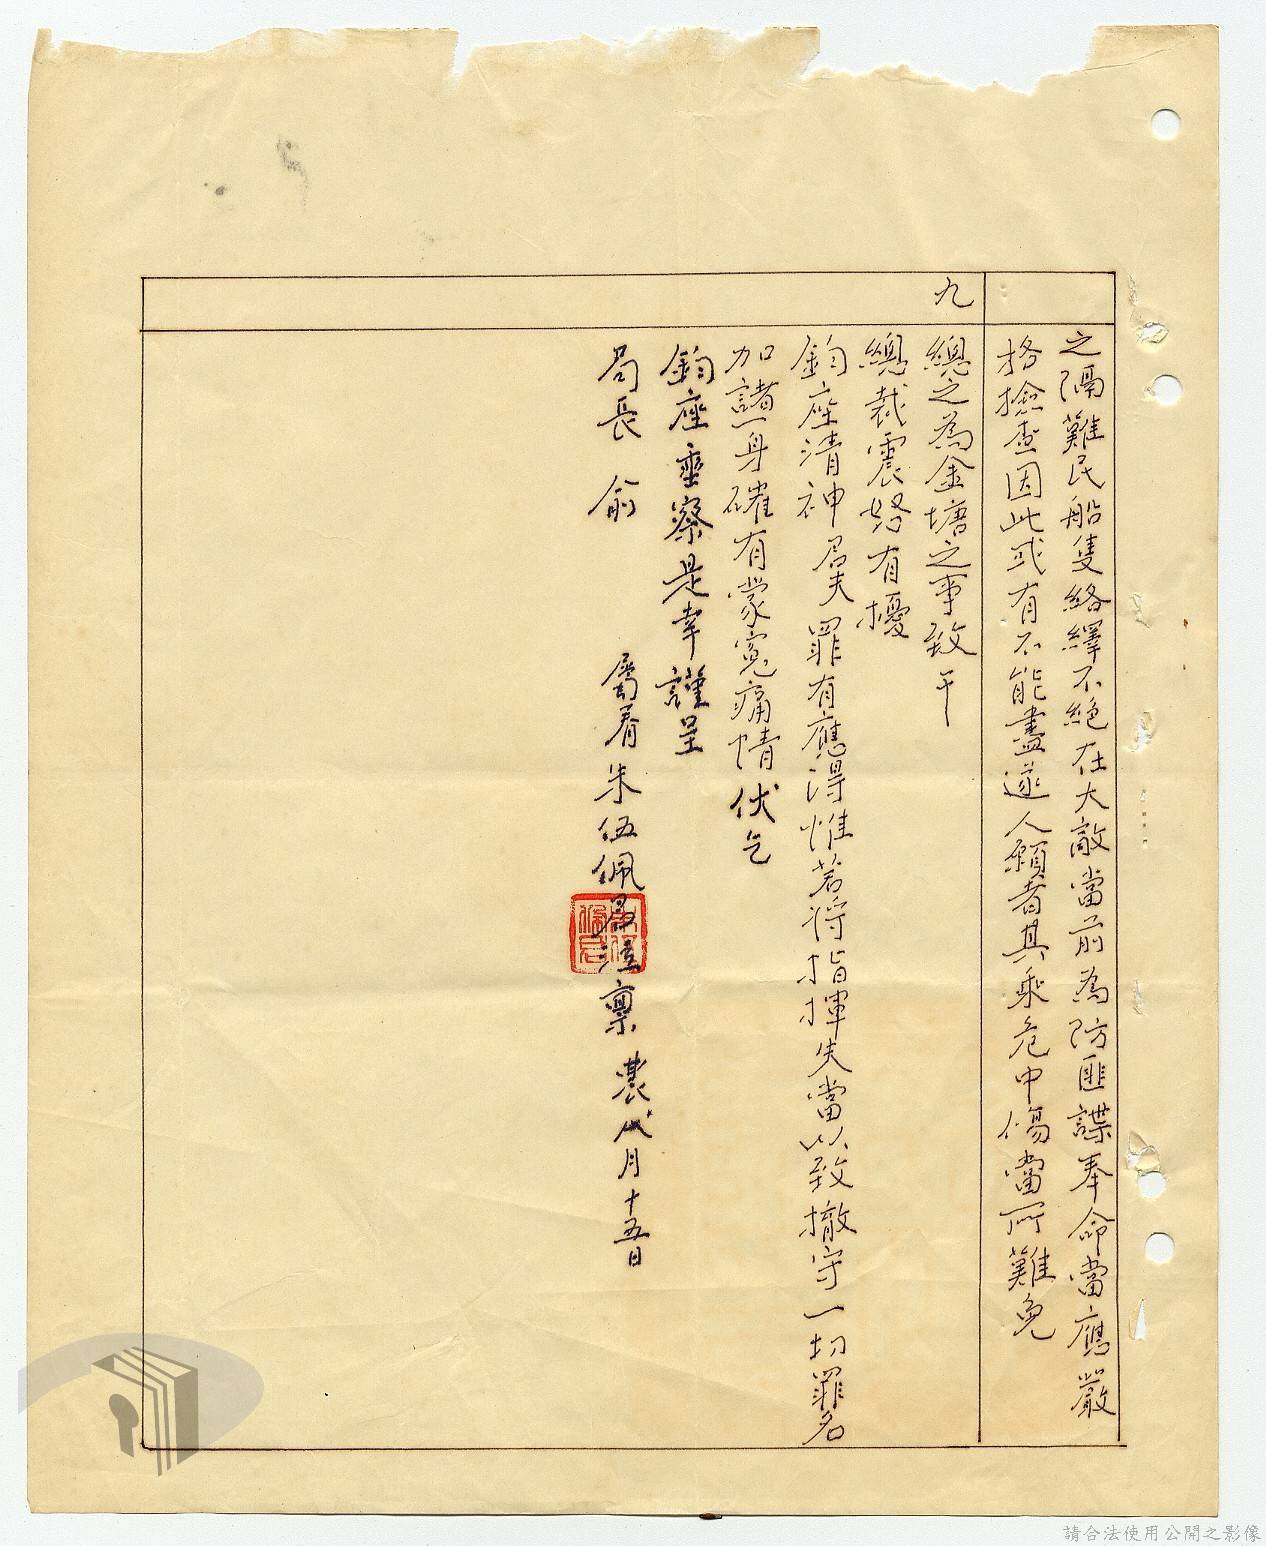 之隔難民船隻絡繹不絕在大敵當前為防匪諜奉命當應嚴
格撿查因此或有不能盡遂人願者其乘危中傷當所難免
九
總之為金塘之事致干
總裁震怒有擾
鈞座清神居夫罪有應得惟若將指揮失當以致撤守一切罪名
加諸一身確有蒙寃痛情伏乞
鈞座垂察是幸謹呈
局長俞
屬眷朱伍佩
稟農八月十五日
請合法使用公開之影像